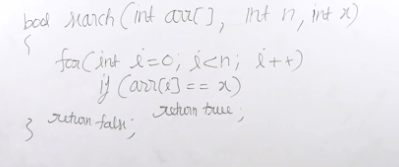 bool search(int arr[], int n, int x)
{
for(int i=0; i<n; i++)
if (arr[i] == x)
return true;
return false;
}